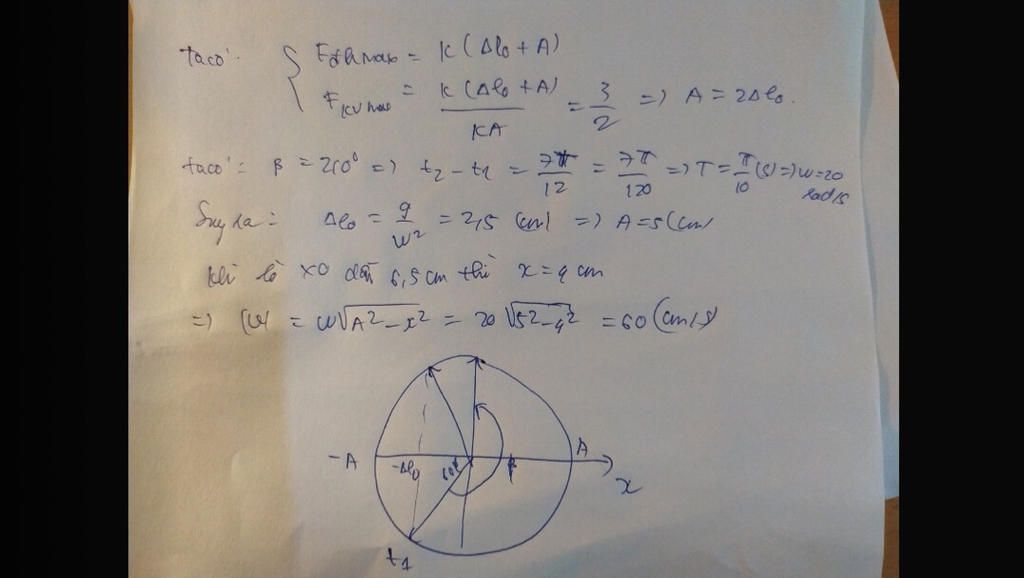 Ta có: { Fđh max = K (Δl₀ + A)
Fkv max = K (Δl₀ + A) / KA = 3/2 => A = 2Δl₀.
ta có: β = 210° => t₂ - t₁ = 7T/12 = 7π/120 => T = π/10 (s) => ω = 20 rad/s
Suy ra: Δl₀ = g/ω² = 2,5 (cm) => A = 5 (cm)
Khi lò xo dãn 6,5 cm thì x = 4 cm
=> |v| = ω√(A² - x²) = 20√(5² - 4²) = 60 (cm/s)
-A -Δl₀ 60° β A
x
t₁